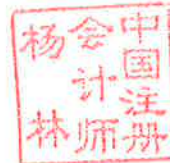 中国注册
会计师
杨林